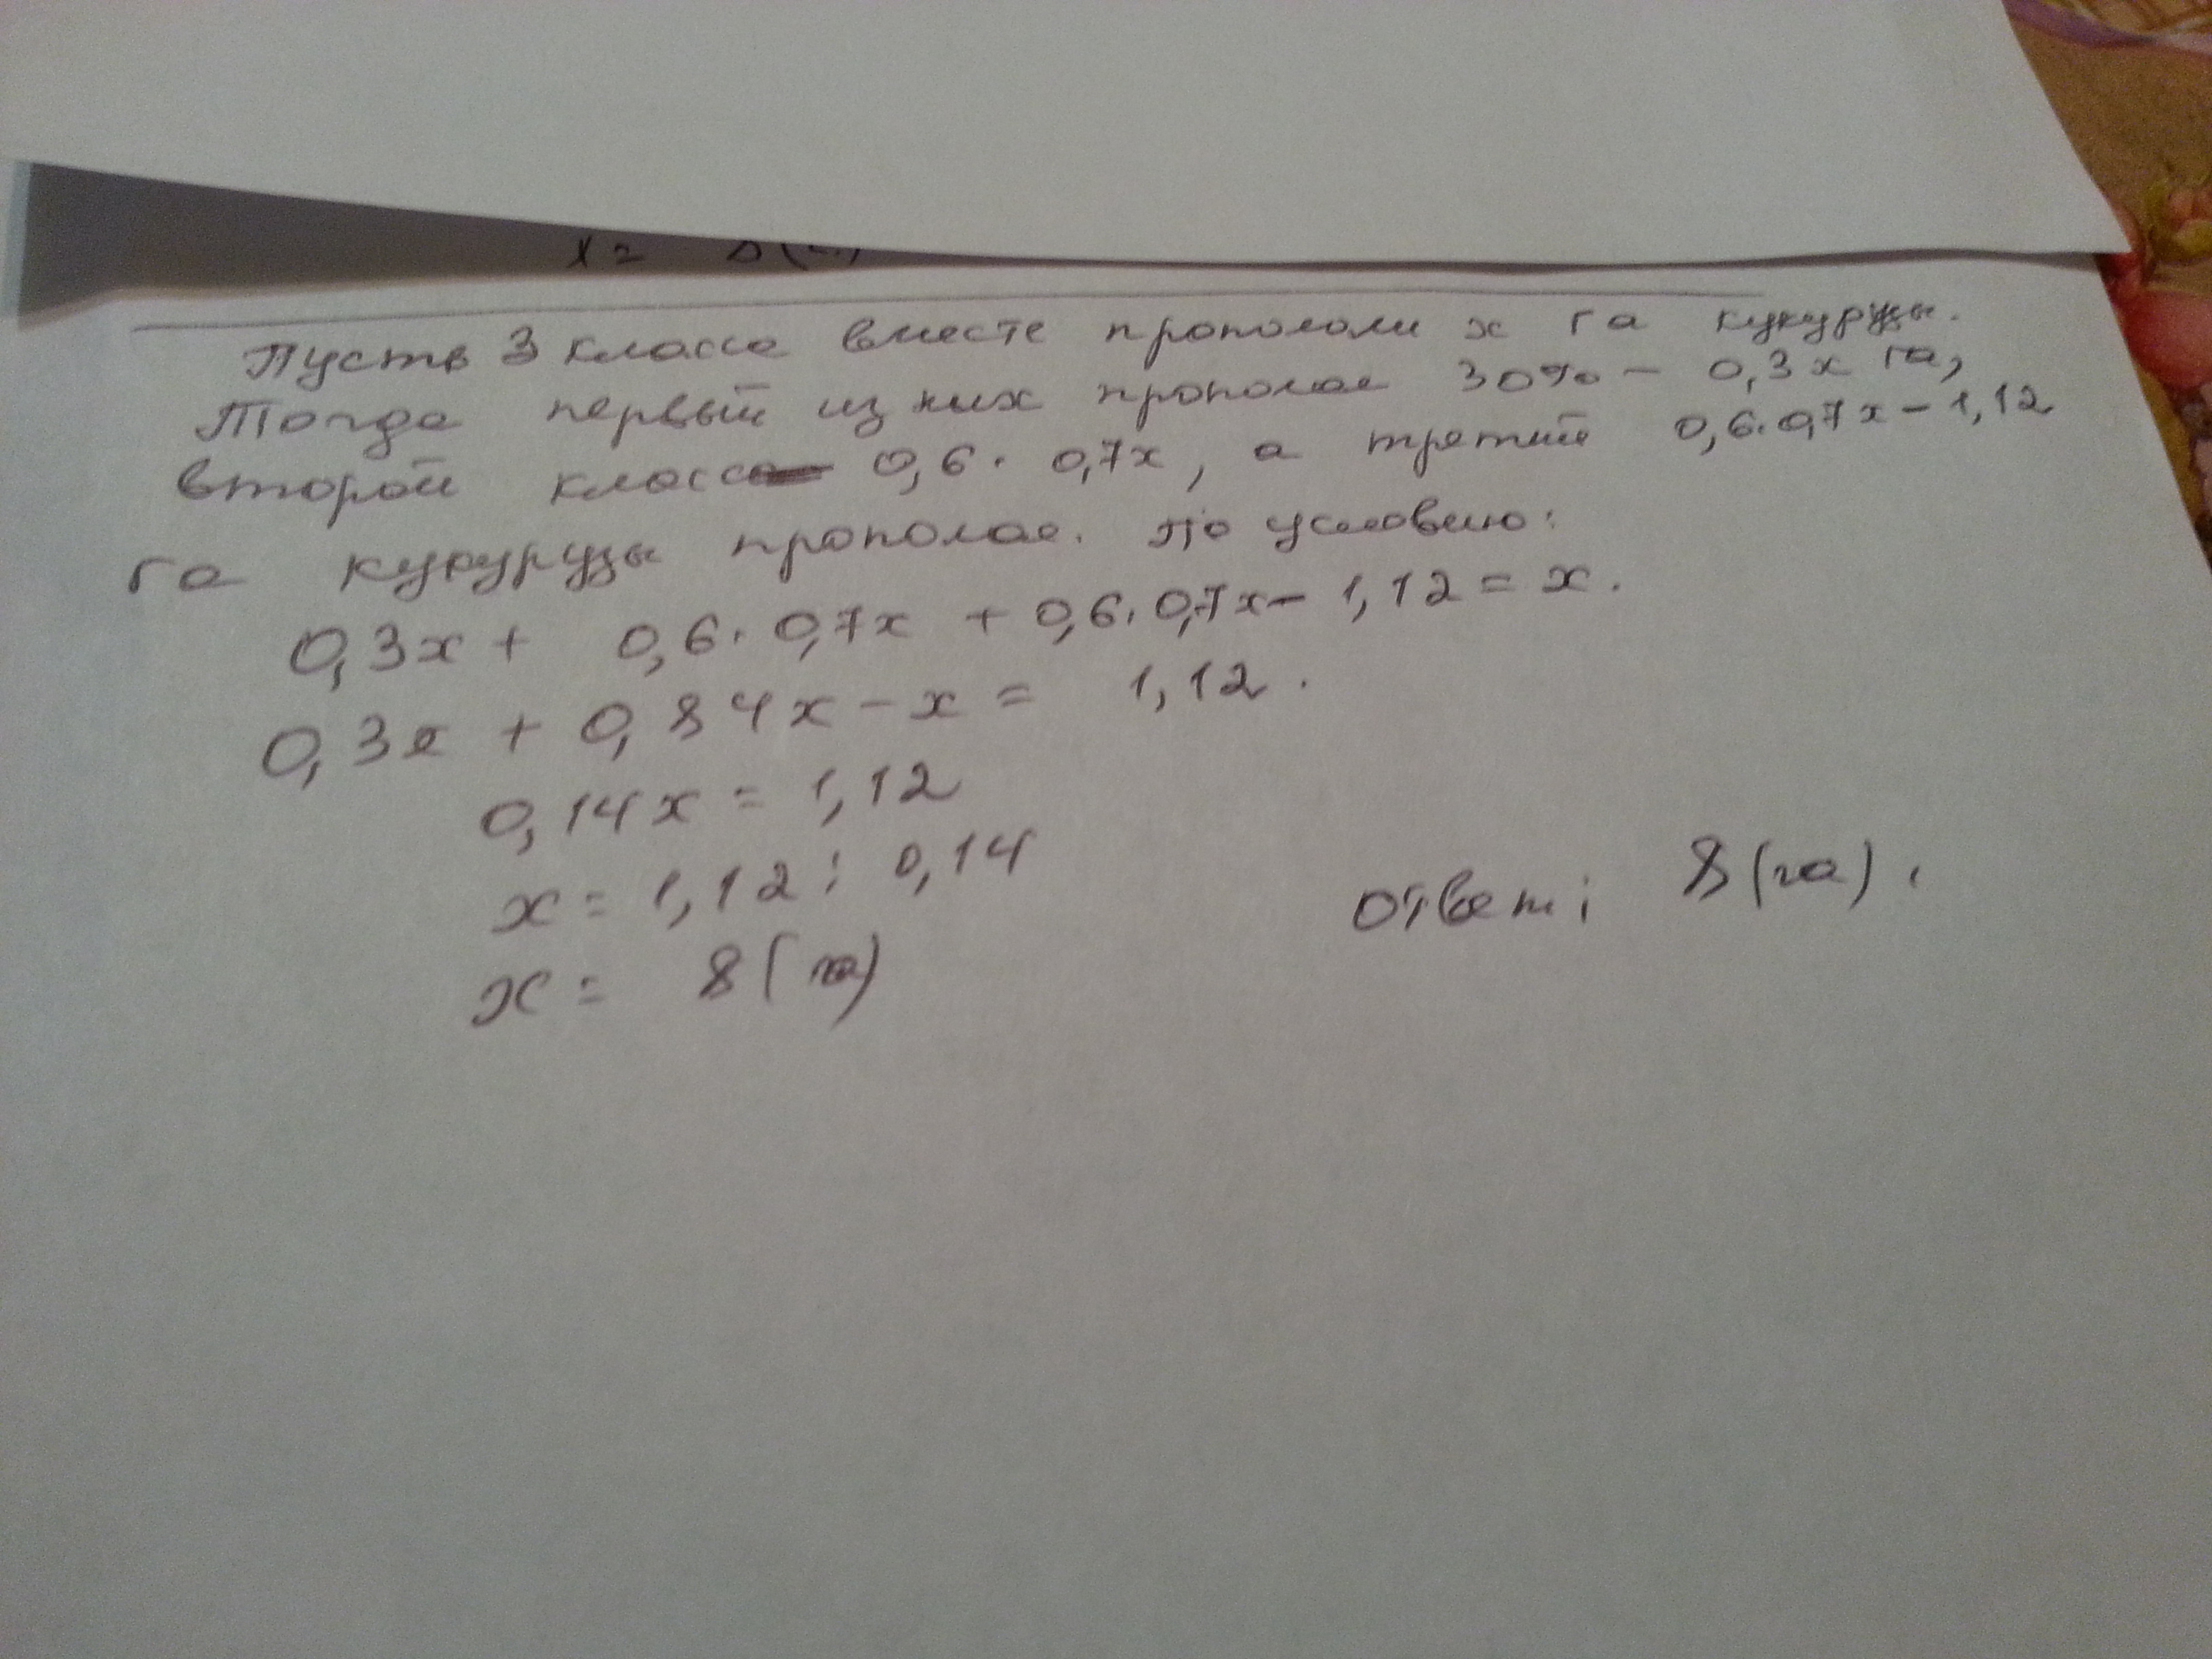 x =
Пусть 3 класса вместе пропололи x га кукурузы.
Тогда первый из них прополол 30% – 0,3x га,
второй класс 0,6 · 0,7x, а третий 0,6·0,7x – 1,12
га кукурузы прополол. По условию:
0,3x + 0,6 · 0,7x + 0,6 · 0,7x – 1,12 = x.
0,3x + 0,84x – x = 1,12.
0,14x = 1,12
x = 1,12 : 0,14
x = 8 (га)
Ответ: 8 (га).